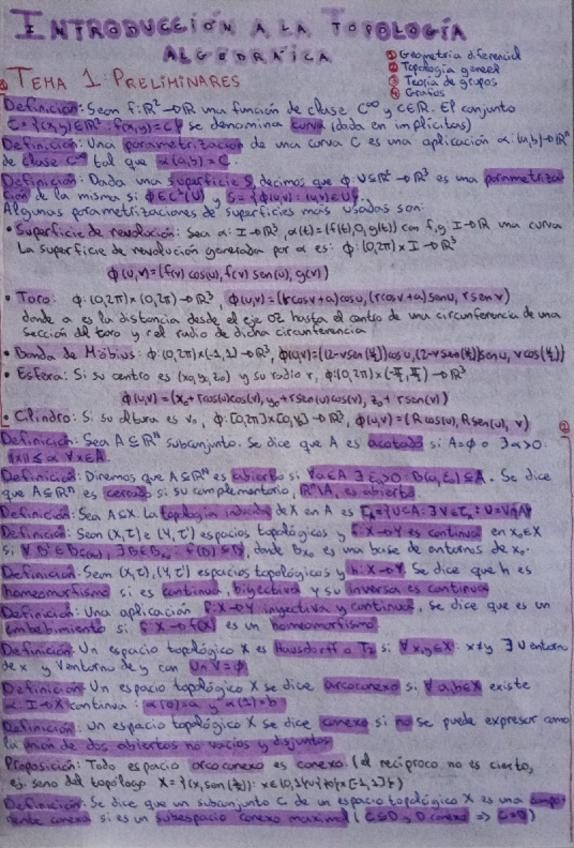 INTRODUCCIÓN A LA TOPOLOGÍA
ALGEBRAICA
① Geometría diferencial
② Topología general
③ Teoría de grupos
④ Grafos
TEMA 1: PRELIMINARES
Definición: Sean f:ℝ²→ℝ una función de clase C^∞ y c∈ℝ. El conjunto
C={(x,y)∈ℝ²: f(x,y)=c} se denomina curva (dada en implícitas)
Definición: Una parametrización de una curva C es una aplicación α:(a,b)→ℝⁿ
de clase C^∞ tal que α(a,b)=C.
Definición: Dada una superficie S, decimos que ϕ:U⊆ℝ²→ℝ³ es una parametriza
ción de la misma si ϕ∈C^∞(U) y S={ϕ(u,v):(u,v)∈U}.
Algunas parametrizaciones de superficies más usadas son:
• Superficie de revolución: Sea α:I→ℝ³, α(t)=(f(t),0,g(t)) con f,g:I→ℝ una curva
La superficie de revolución generada por α es: ϕ:(0,2π)×I→ℝ³
ϕ(u,v)=(f(v)cos(u),f(v)sen(u),g(v))
• Toro: ϕ:(0,2π)×(0,2π)→ℝ³, ϕ(u,v)=((rcosv+a)cosu,(rcosv+a)senu,rsenv)
donde a es la distancia desde el eje OZ hasta el centro de una circunferencia de una
sección del toro y r el radio de dicha circunferencia
• Banda de Möbius: ϕ:(0,2π)×(-1,1)→ℝ³, ϕ(u,v)=((2-vsen(u/2))cosu,(2-vsen(u/2))senu,vcos(u/2))
• Esfera: Si su centro es (x₀,y₀,z₀) y su radio r, ϕ:(0,2π)×(-π/2,π/2)→ℝ³
ϕ(u,v)=(x₀+rcos(u)cos(v),y₀+rsen(u)cos(v),z₀+rsen(v))
• Cilindro: Si su altura es v₀, ϕ:[0,2π]×[0,v₀]→ℝ³, ϕ(u,v)=(Rcos(u),Rsen(u),v)
②
Definición: Sea A⊆ℝⁿ subconjunto. Se dice que A es acotado si A=ϕ o ∃α>0:
‖x‖≤α ∀x∈A.
Definición: Diremos que A⊆ℝⁿ es abierto si ∀a∈A ∃ε>0: B(a,ε)⊆A. Se dice
que A⊆ℝⁿ es cerrado si su complementario, ℝⁿ\A, es abierto.
Definición: Sea A⊆X. La topología inducida de X en A es
Definición: Sean (X,τ) e (Y,τ') espacios topológicos y f:X→Y es continua en x₀∈X
si donde Bx₀ es una base de entornos de x₀.
Definición: Sean (X,τ),(Y,τ') espacios topológicos y h:X→Y. Se dice que h es
homeomorfismo si es continua, biyectiva y su inversa es continua
Definición: Una aplicación f:X→Y inyectiva y continua, se dice que es un
embebimiento si f:X→f(X) es un homeomorfismo.
Definición: Un espacio topológico X es Hausdorff o T₂ si ∀x,y∈X: x≠y ∃U entorno
de x y V entorno de y con U∩V=ϕ
Definición: Un espacio topológico X se dice arcoconexo si ∀a,b∈X existe
α:I→X continua: α(0)=a y α(1)=b
Definición: Un espacio topológico X se dice conexo si no se puede expresar como
la unión de dos abiertos no vacíos y disjuntos
Proposición: Todo espacio arcoconexo es conexo. (el recíproco no es cierto,
ej: seno del topólogo X={(x,sen(1/x)): x∈(0,1]}∪{0}×[-1,1])
Definición: Se dice que un subconjunto C de un espacio topológico X es una compo
nente conexa si es un subespacio conexo maximal (C⊆D, y D conexo ⇒ C=D)